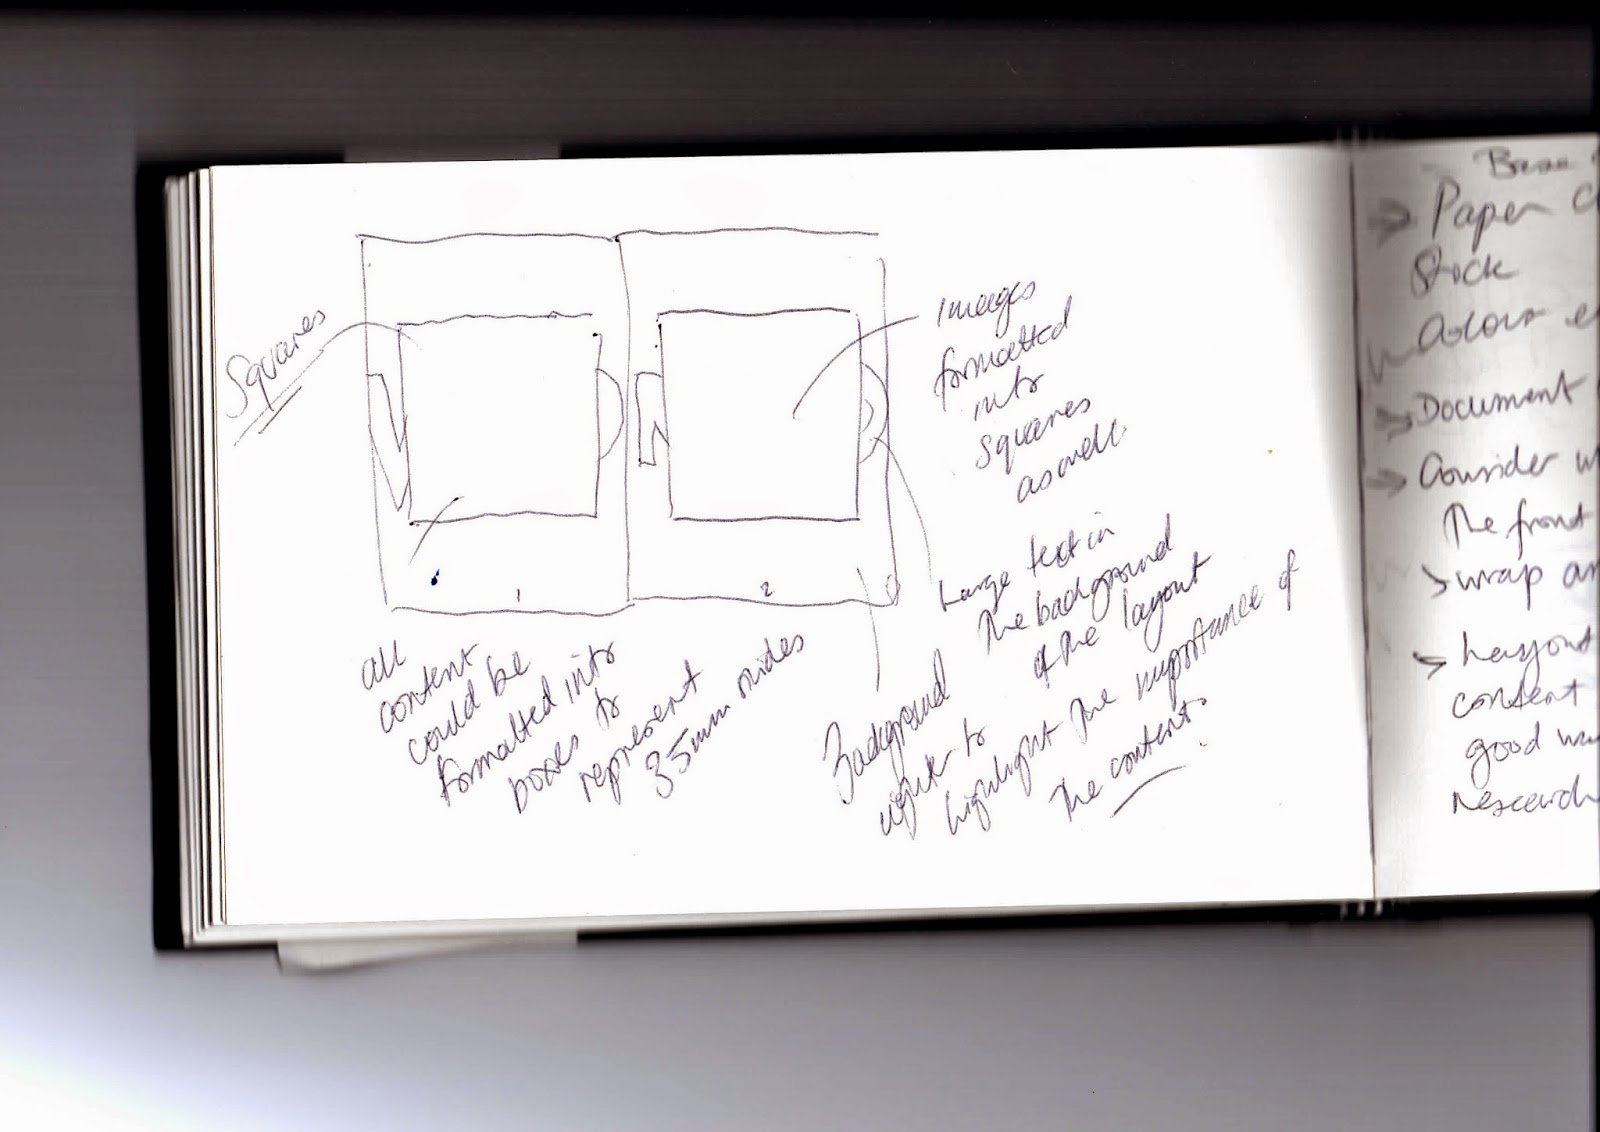 Squares
Images
formatted
into
Squares
aswell.
1
2
all
content
could be
formatted into
boxes to
represent
35mm slides
Large text in
the background
of the layout
Background
to
highlight the importance of
the contents.
Paper
Stock
Colour
Document
Consider
The front
wrap
Layout
content
good
Research